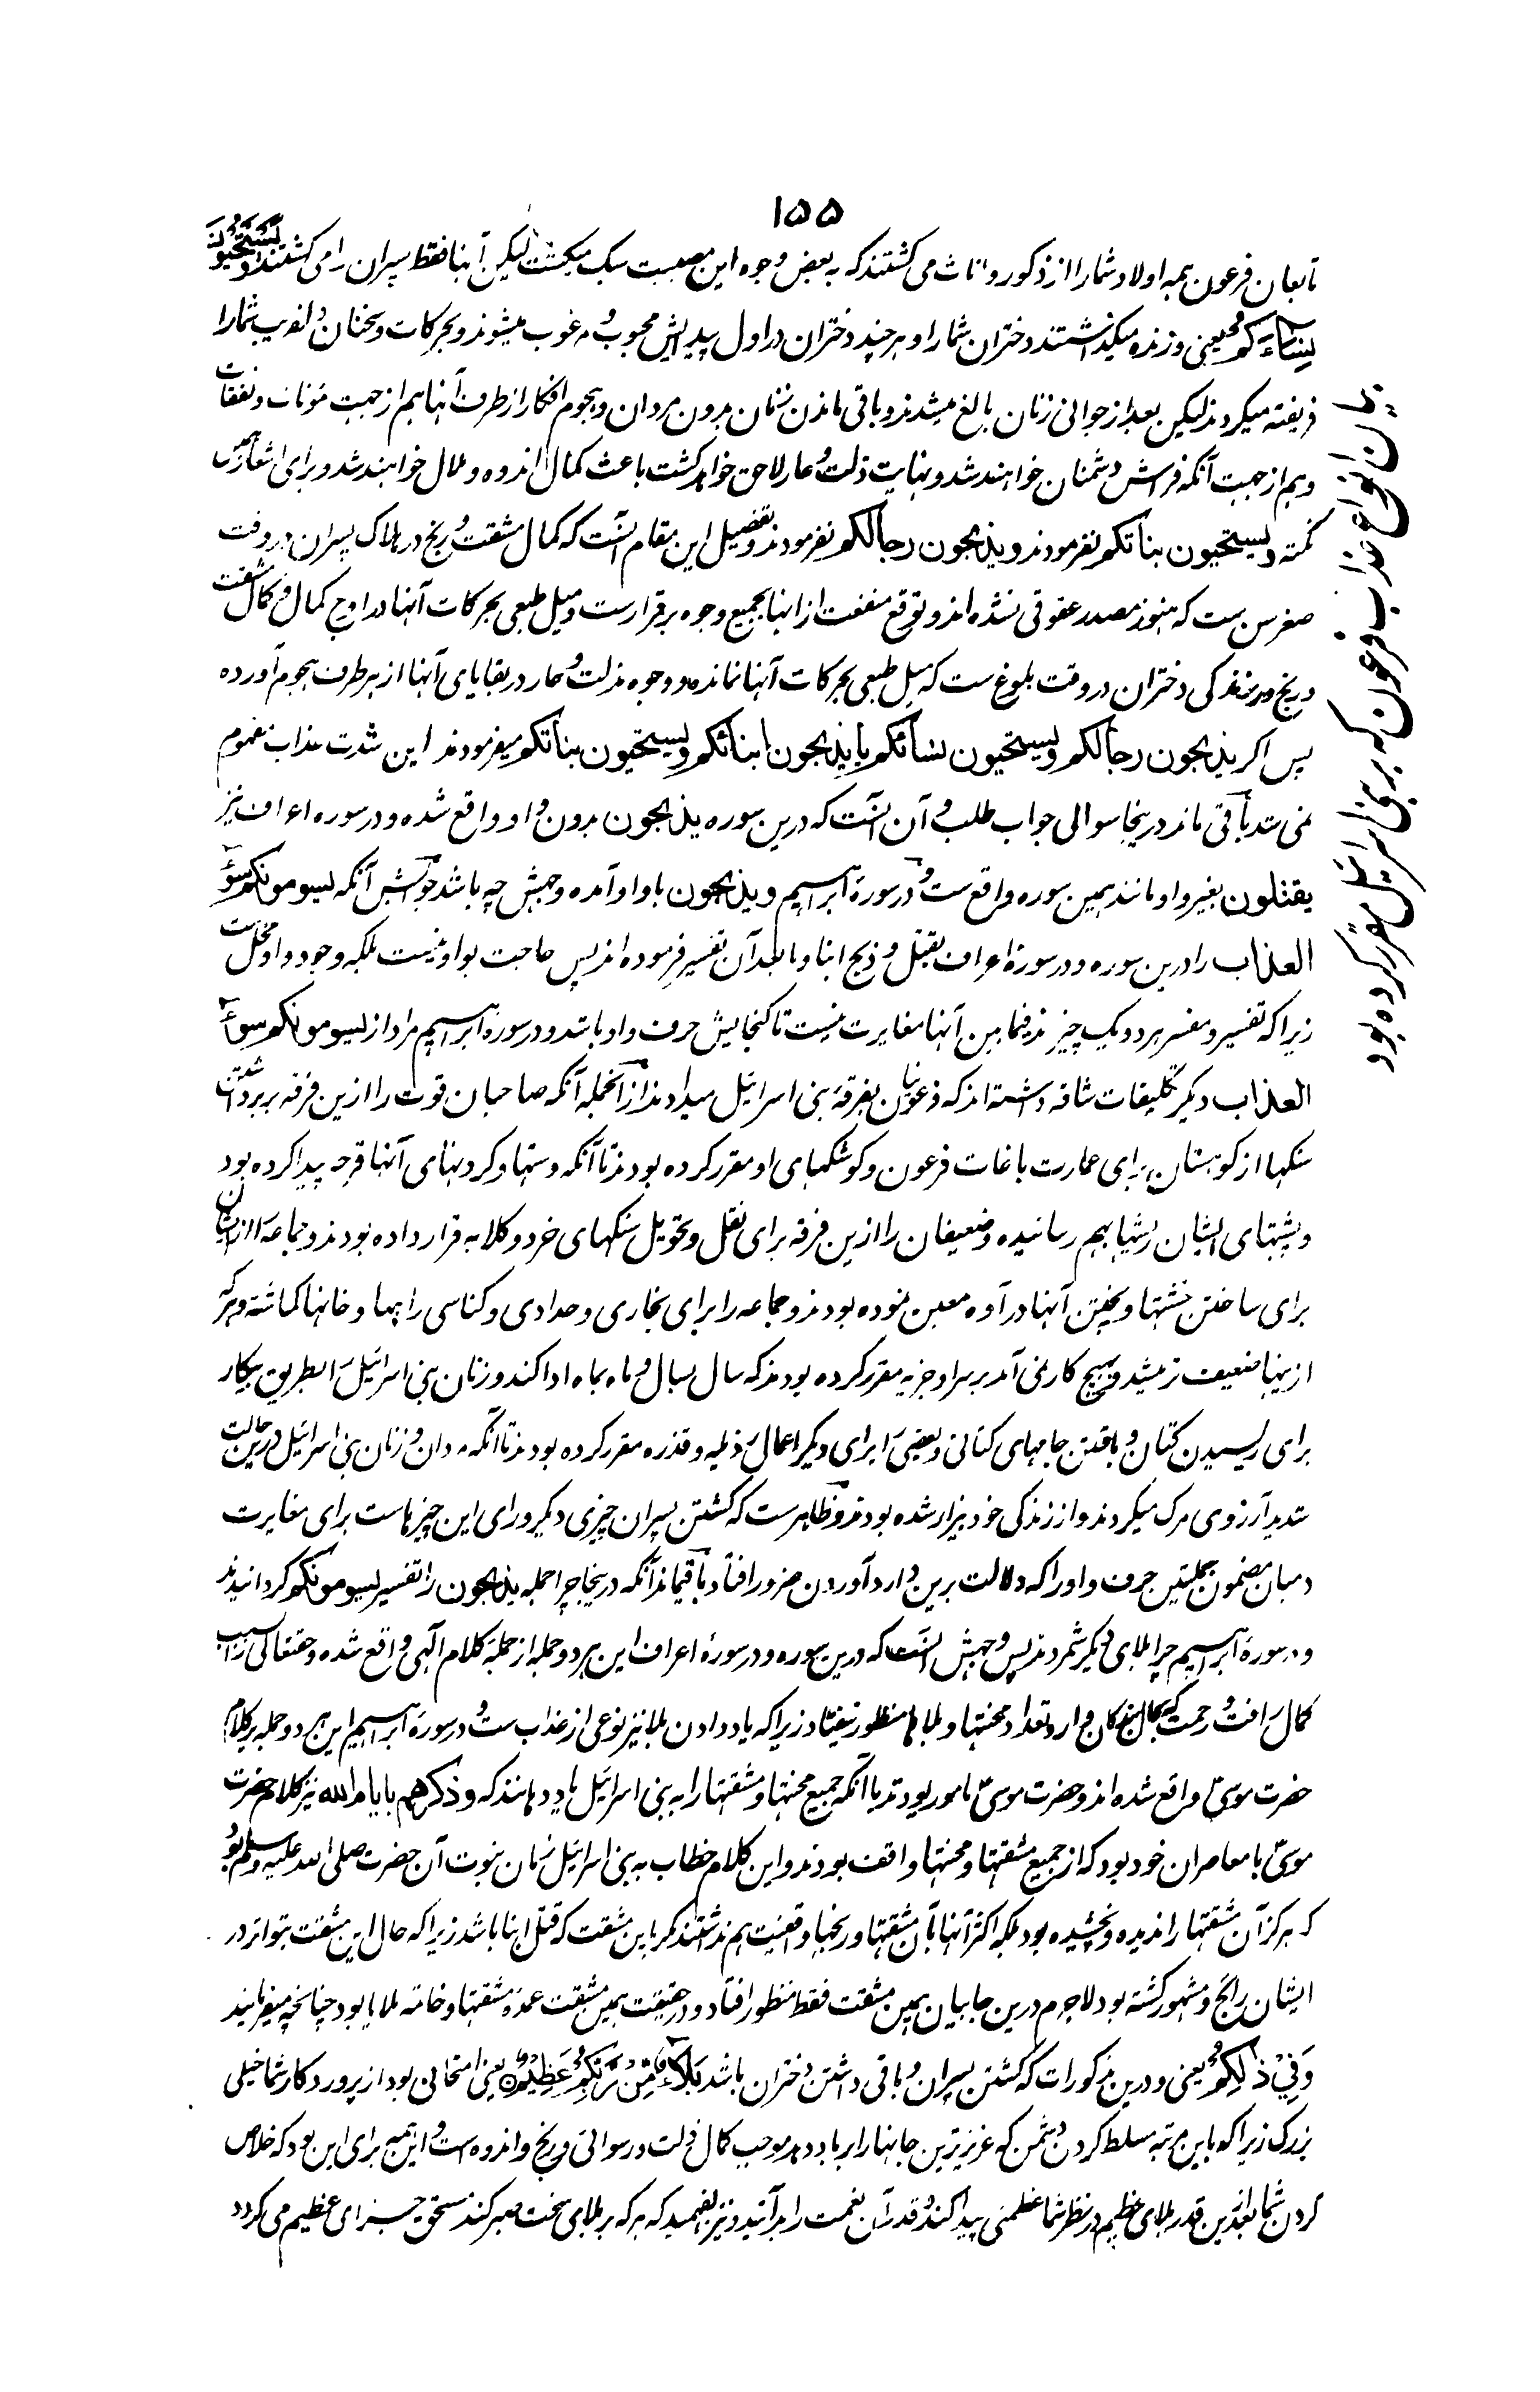 ۱۵۵
تابعان فرعون همه اولاد شما را از ذکور و اناث می کشتند که به بعض وجوه این مصیبت سبک میکشت لیکن آنها فقط پسران را می کشتند وَیَسْتَحْیُوْنَ
نِسَآءَکُمْ یعنی و زنده میگذاشتند دختران شما را و هر چند دختران در اول پیدایش محبوب و مرغوب میشوند و بحرکات و سخنان دلفریب شما را
فریفته میکردند لیکن بعد از جوانی زنان بالغ میشدند و باقی ماندن زنان بدون مردان و هجوم افکار از طرف آنها هم از جهت مؤنات و نفقات
و هم از جهت آنکه فراش دشمنان خواهند شد و نهایت ذلت و عار لاحق خواهد کشت باعث کمال اندوه و ملال خواهند شد و برای اشعار همین
نکته ویستحیون بناتکم نفرمودند و یذبحون رجالکم نفرمودند و تفصیل این مقام آنست که کمال مشقت و رنج در هلاک پسران در وقت
صغر سن ست که هنوز مصدر عقوقی نشده اند و توقع منفعت از اینها بجمیع وجوه برقرارست و میل طبعی بحرکات آنها در اوج کمال و کمال مشقت
و رنج در زندکی دختران در وقت بلوغ ست که میل طبعی بحرکات آنها نمانده و وجوه مذلت و عار در بقایای آنها از هر طرف هجوم آورده
پس اکر یذبحون رجالکم ویستحیون نسائکم یا یذبحون ابنائکم ویستحیون بناتکم میفرمودند این شدت عذاب مفهوم
نمی شد باقی ماند درینجا سوالی جواب طلب و آن آنست که درین سوره یذبحون بدون واو واقع شده و در سوره اعراف نیز
یقتلون بغیر واو مانند همین سوره واقع ست و در سورۀ ابراهیم ویذبحون با واو آمده وجهش چه باشد جوابش آنکه یسومونکم سوٓءَ
العذاب را درین سوره و در سورۀ اعراف بقتل و ذبح ابنا و ما بعد آن تفسیر فرموده اند پس حاجت بواو نیست بلکه وجود واو مخل ست
زیرا که تفسیر و مفسر هر دو یک چیزند فیما بین آنها مغایرت نیست تا کنجایش حرف واو باشد و در سورۀ ابراهیم مراد از یسومونکم سوٓءَ
العذاب دیکر تکلیفات شاقه داشته اند که فرعونیان بفرقۀ بنی اسرائیل میدادند از آنجمله آنکه صاحبان قوت را ازین فرقه بر برداشتن
سنکها از کوهستان برای عمارت باغات فرعون و کوشکهای او مقرر کرده بودند تا آنکه دستها و کردنهای آنها قرحه پیدا کرده بود
و پشتهای ایشان ریشها بهم رسانیده و ضعیفان را ازین فرقه برای نقل و تحویل سنکهای خرد و کلابه قرار داده بودند و جماعه را از ایشان
برای ساختن خشتها و پختن آنها در آوه معین نموده بودند و جماعه را برای نجاری و حدادی و کناسی راهها و خانها کماشته و هر که
ازینها ضعیف تر میشد و بهیچ کار نمی آمد بر سر او جزیه مقرر کرده بودند که سال بسال و ماه بماه ادا کند و زنان بنی اسرائیل را بطریق بیکار
برای ریسیدن کتان و بافتن جامهای کتانی و بعضی را برای دیکر اعمال رذیله و قذره مقرر کرده بودند تا آنکه مردان و زنان بنی اسرائیل درین حالت
شدید آرزوی مرک میکردند و از زندکی خود بیزار شده بودند و ظاهرست که کشتن پسران چیزی دیکر ورای این چیزهاست برای مغایرت
در میان مضمون جملتین حرف واو را که دلالت برین دارد آوردن ضرور افتاد باقیماند آنکه درینجا چرا جمله یذبحون را تفسیر یسومونکم کردانیدند
و در سورۀ ابراهیم چرا بلای دیکر شمردند پس وجهش آنست که درین سوره و در سورۀ اعراف این هر دو جمله از جملۀ کلام الهی واقع شده و حقتعالی را بسبب
کمال رافت و رحمت که بحال بندکان دارد تعداد محنتها و بلاها منظور نیفتاد زیرا که یاد دادن بلا نیز نوعی از عذاب ست و در سورۀ ابراهیم این هر دو جمله بر کلام
حضرت موسیؑ واقع شده اند و حضرت موسیؑ مامور بودند باآنکه جمیع محنتها و مشقتها را به بنی اسرائیل یاد دهانند که وذکرهم بایام الله نیز کلام حضرت
موسیؑ با معاصران خود بود که از جمیع مشقتها و محنتها واقف بودند و این کلام خطاب به بنی اسرائیل زمان نبوت آن حضرت صلی الله علیه وسلم بود
که هرکز آن مشقتها را ندیده و نچشیده بود بلکه اکثر آنها بآن مشقتها و رنجها وقفیت هم نداشتند مکر باین مشقت که قتل ابنا باشد زیرا که حال این مشقت بتواتر در
ایشان رائج و مشهور کشته بود لاجرم درین جا بیان همین مشقت فقط منظور افتاد و در حقیقت همین مشقت عمدۀ مشقتها و خاتمه بلایا بود چنانچه میفرمایند
وَفِیْ ذٰلِکُمْ یعنی و درین مذکورات که کشتن پسران و باقی داشتن دختران باشد بَلَآءٌ مِّنْ رَّبِّکُمْ عَظِیْمٌ یعنی امتحانی بود از پروردکار شما خیلی
بزرک زیرا که باین مرتبه مسلط کردن دشمن که عزیزترین جانها را برباد دهد موجب کمال ذلت و رسوائی و رنج و اندوه است و این همه برای این بود که خلاص
کردن شما بعد ازین قدر بلای عظیم در نظر شما عظمتی پیدا کند و قدر آن نعمت را بدانید و نیز بفهمید که هر که بر بلای سخت صبر کند مستحق جزای عظیم می کردد
بیان انواع عذاب فرعون که بر بنی اسرائیل مقرر کرده بود